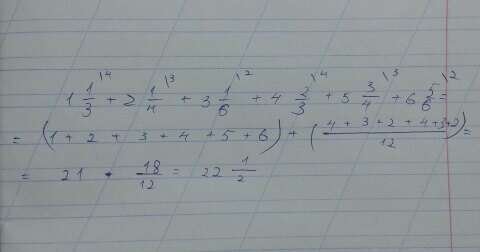 1 1/3 \4 + 2 1/4 \3 + 3 1/6 \2 + 4 2/3 \4 + 5 3/4 \3 + 6 5/6 \2 =
= (1 + 2 + 3 + 4 + 5 + 6) + (4 + 3 + 2 + 4 + 3 + 2)/12 =
= 21 + 18/12 = 22 1/2